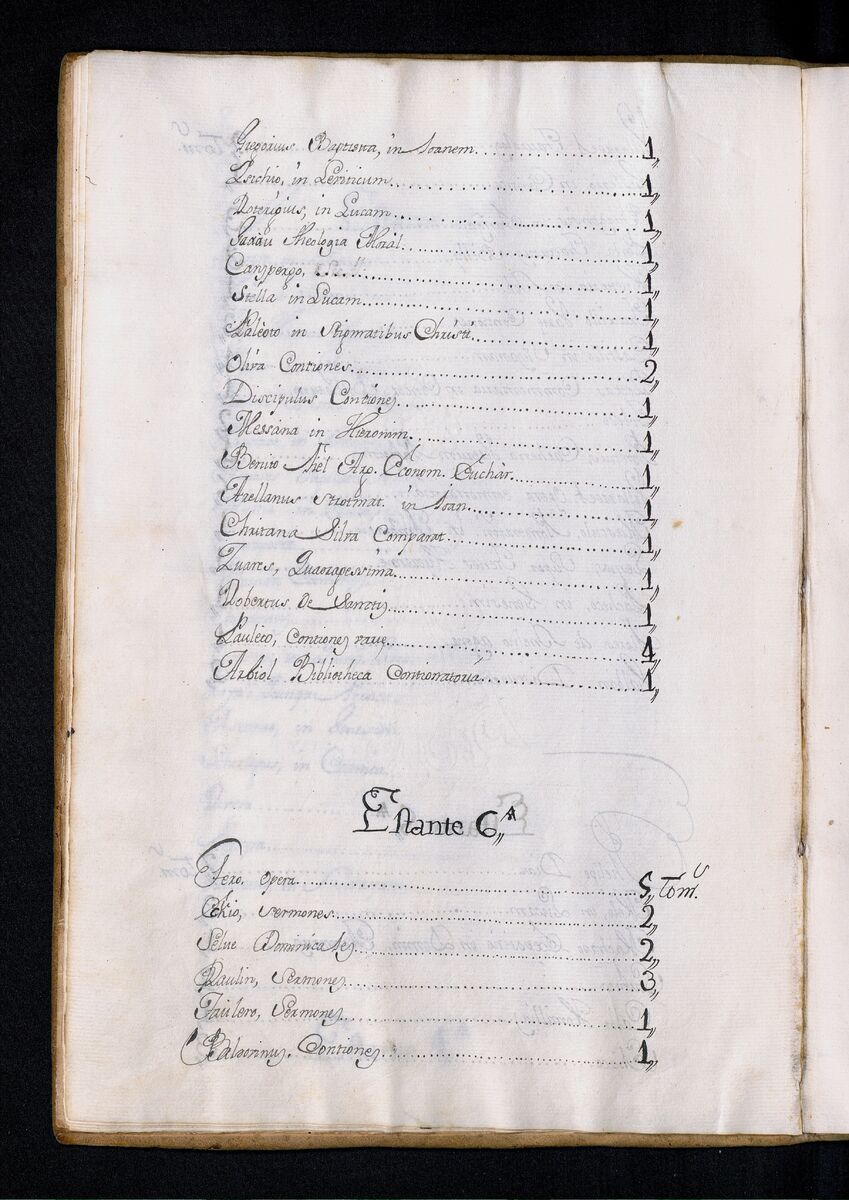 Gregorius Baptista, in Ioanem. 1,,
Isichio, in Leviticum. 1,,
Roterigius, in Lucam. 1,,
Theologia Moral. 1,,
Canspergo. 1,,
Stella in Lucam. 1,,
Paleoto in Stigmatibus Christi. 1,,
Oliva Contiones. 2,,
Discipulus Contiones. 1,,
Messana in Hieronim. 1,,
Benito Econom. Euchar. 1,,
Arellanus Strotmat. in Ioan. 1,,
Silva Comparat. 1,,
Zuares, Quaragessima. 1,,
Robertus De Sanctis. 1,,
Pauleto, Contiones 4,,
Arbiol Bibliotheca Contionatoria. 1,,
Estante 6,,ᴬ
Fero. opera. 5,, Tom.ˢ
Ekio, Sermones. 2,,
Selve Dominicales. 2,,
Raulin, Sermones. 3,,
Taulero, Sermones. 1,,
Contiones. 1,,